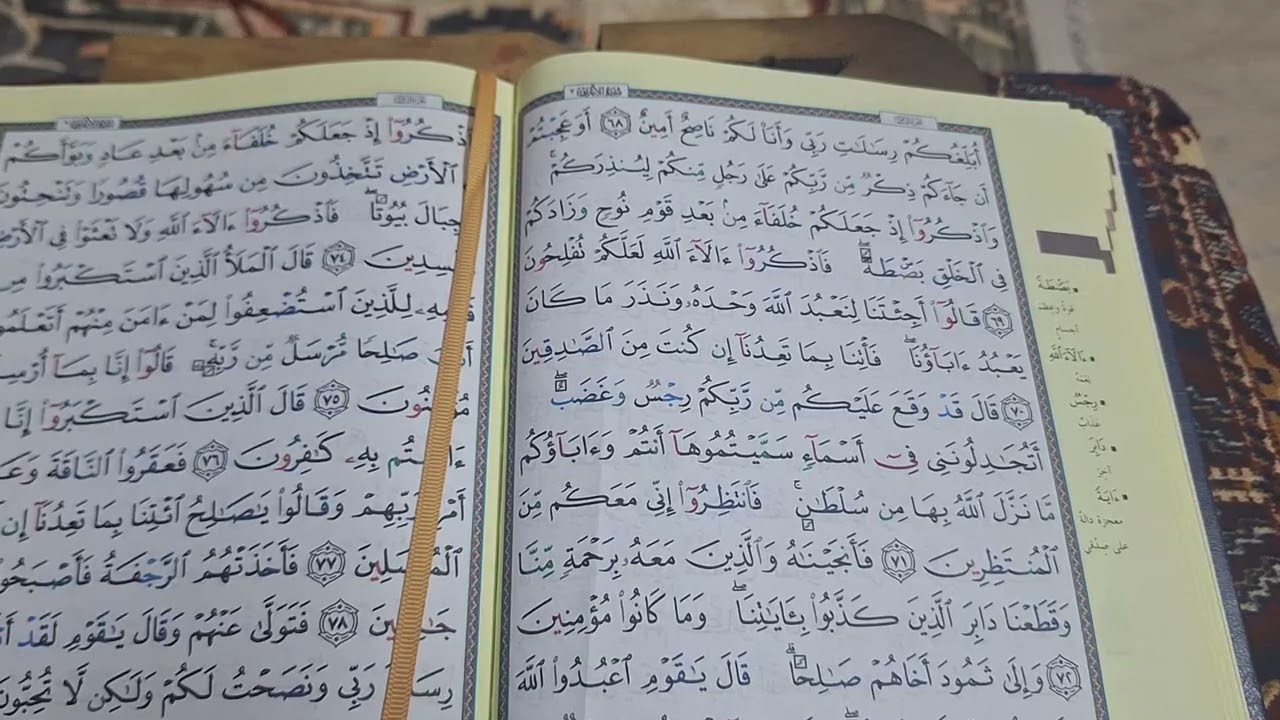 أُبَلِّغُكُمْ رِسَٰلَٰتِ رَبِّي وَأَنَا۠ لَكُمْ نَاصِحٌ أَمِينٌ ٦٨ أَوَعَجِبْتُمْ
أَن جَآءَكُمْ ذِكْرٌ مِّن رَّبِّكُمْ عَلَىٰ رَجُلٍ مِّنكُمْ لِيُنذِرَكُمْ ۚ
وَٱذْكُرُوٓا۟ إِذْ جَعَلَكُمْ خُلَفَآءَ مِنۢ بَعْدِ قَوْمِ نُوحٍ وَزَادَكُمْ
فِي ٱلْخَلْقِ بَصْۜطَةً ۖ فَٱذْكُرُوٓا۟ ءَالَآءَ ٱللَّهِ لَعَلَّكُمْ تُفْلِحُونَ
٦٩ قَالُوٓا۟ أَجِئْتَنَا لِنَعْبُدَ ٱللَّهَ وَحْدَهُۥ وَنَذَرَ مَا كَانَ
يَعْبُدُ ءَابَآؤُنَا ۖ فَأْتِنَا بِمَا تَعِدُنَآ إِن كُنتَ مِنَ ٱلصَّٰدِقِينَ
٧٠ قَالَ قَدْ وَقَعَ عَلَيْكُم مِّن رَّبِّكُمْ رِجْسٌ وَغَضَبٌ ۖ
أَتُجَٰدِلُونَنِي فِيٓ أَسْمَآءٍ سَمَّيْتُمُوهَآ أَنتُمْ وَءَابَآؤُكُم
مَّا نَزَّلَ ٱللَّهُ بِهَا مِن سُلْطَٰنٍ ۚ فَٱنتَظِرُوٓا۟ إِنِّي مَعَكُم مِّنَ
ٱلْمُنتَظِرِينَ ٧١ فَأَنجَيْنَٰهُ وَٱلَّذِينَ مَعَهُۥ بِرَحْمَةٍ مِّنَّا
وَقَطَعْنَا دَابِرَ ٱلَّذِينَ كَذَّبُوا۟ بِـَٔايَٰتِنَا ۖ وَمَا كَانُوا۟ مُؤْمِنِينَ
٧٢ وَإِلَىٰ ثَمُودَ أَخَاهُمْ صَٰلِحًا ۗ قَالَ يَٰقَوْمِ ٱعْبُدُوا۟ ٱللَّهَ
بَصْۜطَةً
قوة وعظم
أجسام
ءَالَآءَ ٱللَّهِ
نِعَمَهُ
رِجْسٌ
عذاب
دَابِرَ
آخر
ءَايَةً
معجزة دالة
على صدقي
إِذْ جَعَلَكُمْ خُلَفَآءَ مِنۢ بَعْدِ عَادٍ وَبَوَّأَكُمْ
ٱلْأَرْضِ تَتَّخِذُونَ مِن سُهُولِهَا قُصُورًا وَتَنْحِتُونَ
بُيُوتًا ۖ فَٱذْكُرُوٓا۟ ءَالَآءَ ٱللَّهِ وَلَا تَعْثَوْا۟ فِي
٧٤ قَالَ ٱلْمَلَأُ ٱلَّذِينَ ٱسْتَكْبَرُوا۟
لِلَّذِينَ ٱسْتُضْعِفُوا۟ لِمَنْ ءَامَنَ مِنْهُمْ
صَٰلِحًا مُّرْسَلٌ مِّن رَّبِّهِۦ ۚ قَالُوٓا۟ إِنَّا بِمَآ
٧٥ قَالَ ٱلَّذِينَ ٱسْتَكْبَرُوٓا۟ إِنَّا
بِهِۦ كَٰفِرُونَ ٧٦ فَعَقَرُوا۟ ٱلنَّاقَةَ
رَبِّهِمْ وَقَالُوا۟ يَٰصَٰلِحُ ٱئْتِنَا بِمَا تَعِدُنَآ إِن
٧٧ فَأَخَذَتْهُمُ ٱلرَّجْفَةُ
٧٨ فَتَوَلَّىٰ عَنْهُمْ وَقَالَ يَٰقَوْمِ لَقَدْ
رَبِّي وَنَصَحْتُ لَكُمْ وَلَٰكِن لَّا تُحِبُّونَ